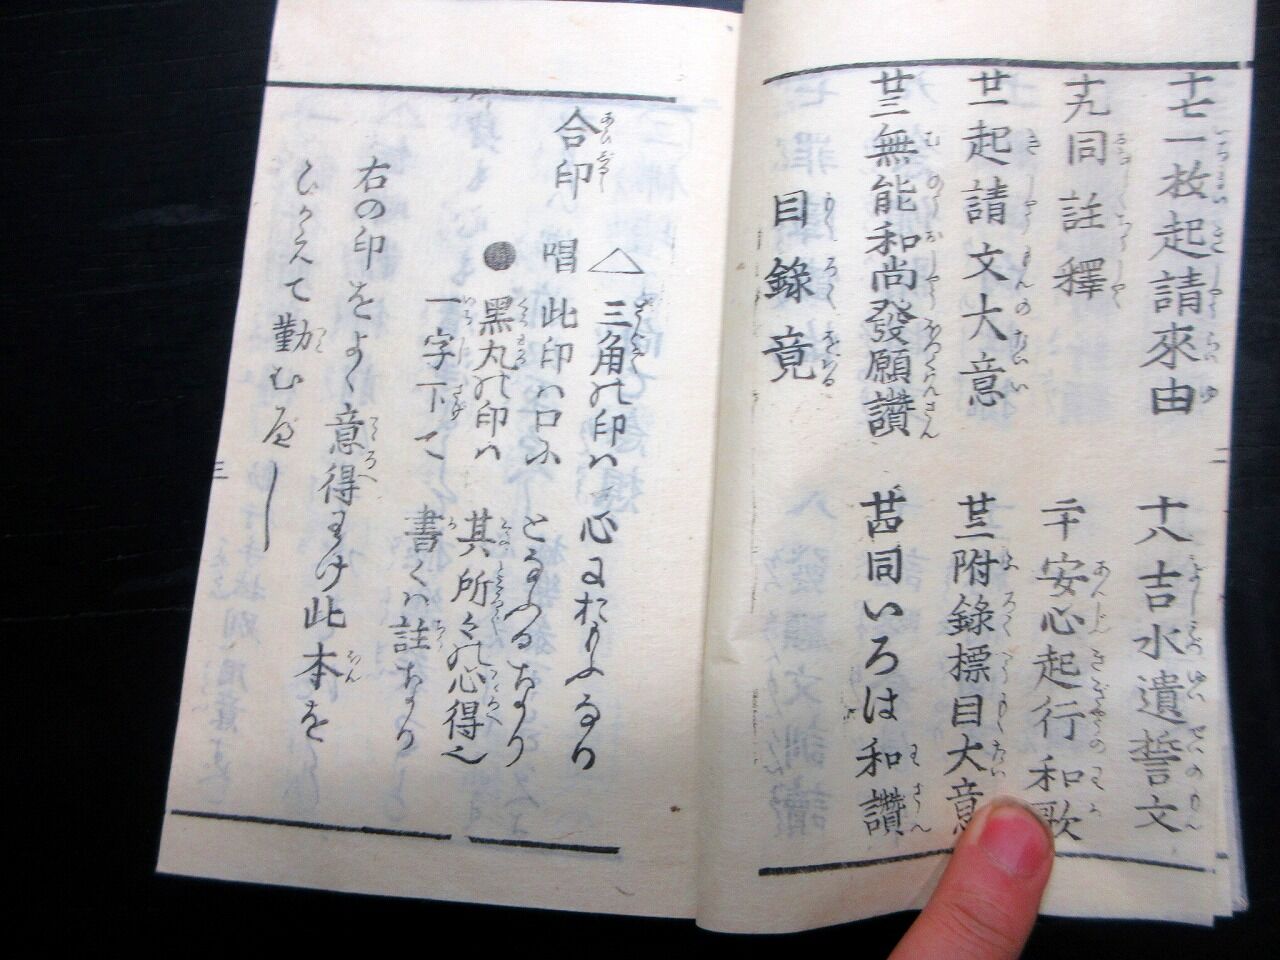 十七一枚起請來由
十八吉水遺誓文
十九同註釋
二十安心起行和歌
廿一起請文大意
廿二附錄標目大意
廿三無能和尚發願讃
廿四同いろは和讃
目錄竟
二
合印
△三角の印ハ心におもふなり
唱此印ハ口にとなふるなり
●黒丸の印ハ其所々の心得也
一字下て書くハ註なり
右の印をよく意得わけ此本を
ひかえて勤むべし
三